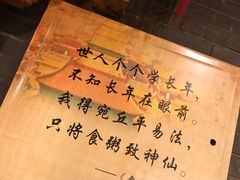 世人个个学长年，
不知长年在眼前。
我得宛丘平易法，
只将食粥致神仙。
——《食